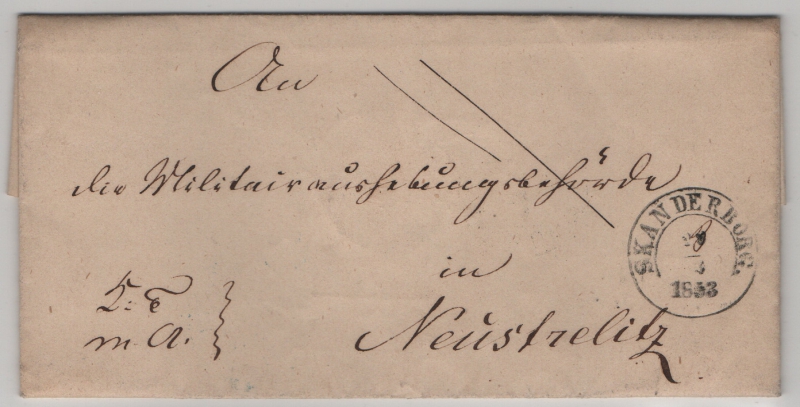 An
die Militairaushebungsbehörde
in
Neustrelitz
m. A.
SKANDERBORG.
1853